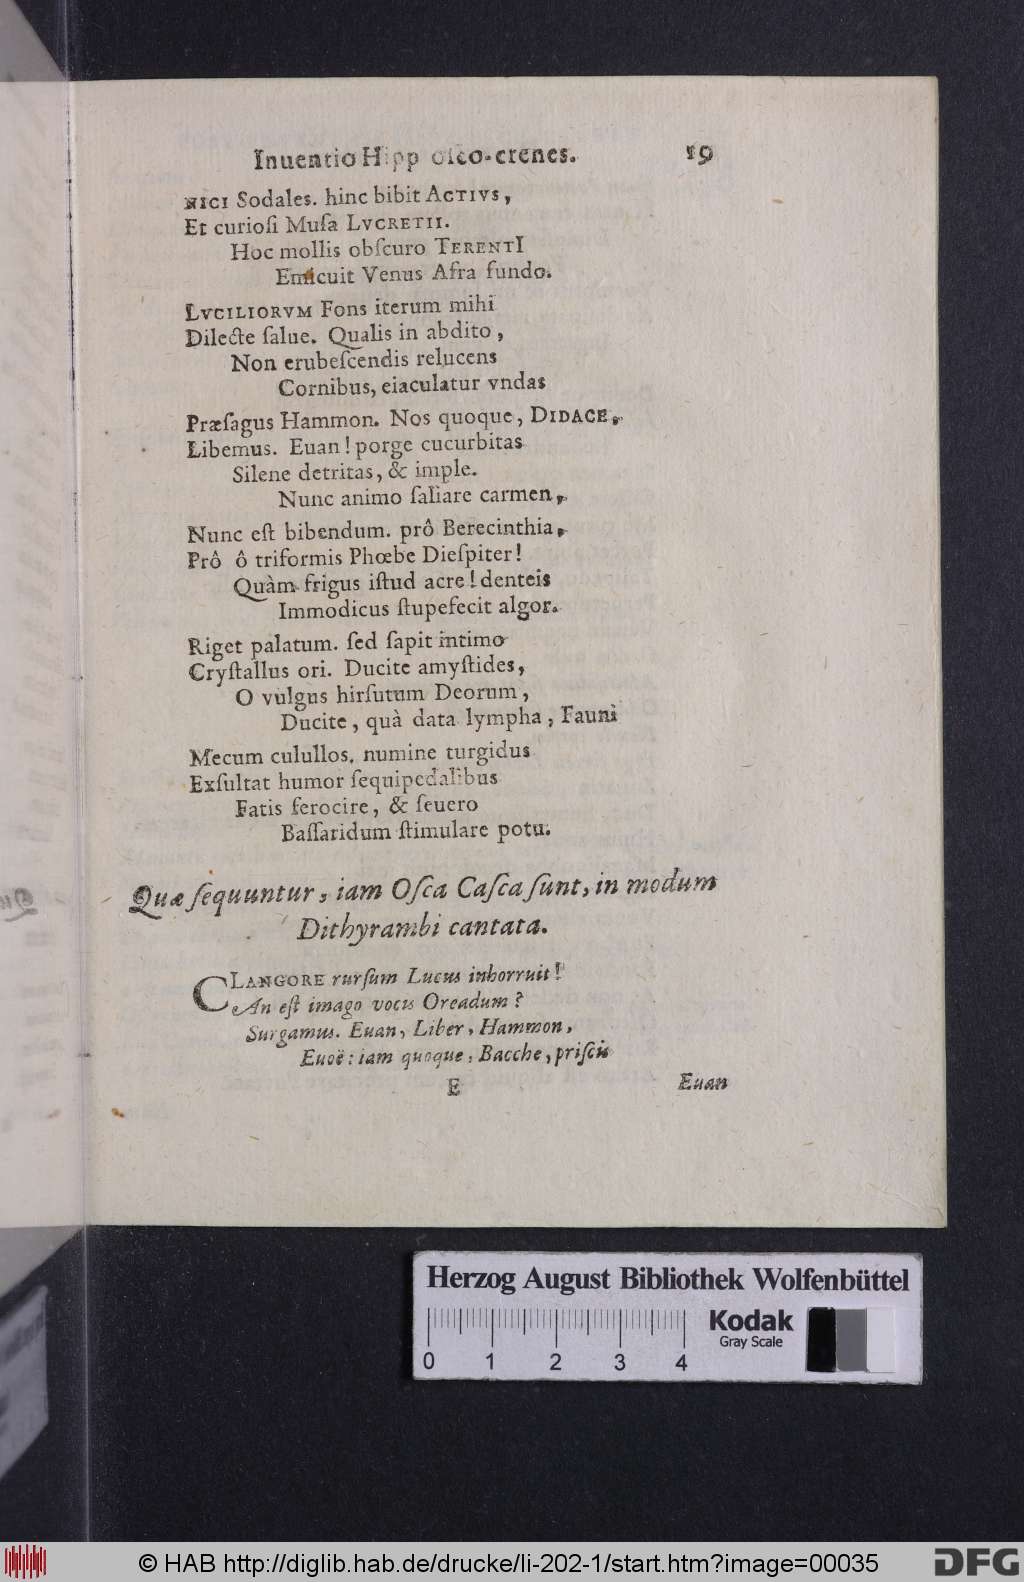 Inuentio Hipp osco-crenes. 19
NICI Sodales. hinc bibit ACTIVS,
Et curioſi Muſa LVCRETII.
Hoc mollis obſcuro TERENTI
Emicuit Venus Afra fundo.
LVCILIORVM Fons iterum mihi
Dilecte ſalue. Qualis in abdito,
Non erubeſcendis relucens
Cornibus, eiaculatur vndas
Præſagus Hammon. Nos quoque, DIDACE,
Libemus. Euan! porge cucurbitas
Silene detritas, & imple.
Nunc animo ſaliare carmen,
Nunc eſt bibendum. prô Berecinthia,
Prô ô triformis Phœbe Dieſpiter!
Quàm frigus iſtud acre! denteis
Immodicus ſtupefecit algor.
Riget palatum. ſed ſapit intimo
Cryſtallus ori. Ducite amyſtides,
O vulgus hirſutum Deorum,
Ducite, quà data lympha, Fauni
Mecum culullos. numine turgidus
Exſultat humor ſequipedalibus
Fatis ferocire, & ſeuero
Baſſaridum ſtimulare potu.
Quæ ſequuntur, iam Oſca Caſca ſunt, in modum
Dithyrambi cantata.
CLANGORE rurſum Lucus inhorruit!
An eſt imago vocis Oreadum?
Surgamus. Euan, Liber, Hammon,
Euoë: iam quoque, Bacche, priſcis
E Euan
Herzog August Bibliothek Wolfenbüttel
Kodak
Gray Scale
0 1 2 3 4
© HAB http://diglib.hab.de/drucke/li-202-1/start.htm?image=00035
DFG